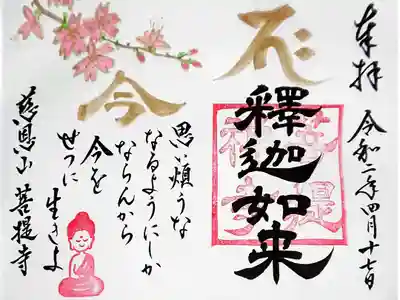 奉拝 令和二年四月十七日
釋迦如来
今
思い煩うな
なるようにしか
ならんから
今を
せつに
生きよ
慈恩山 菩提寺